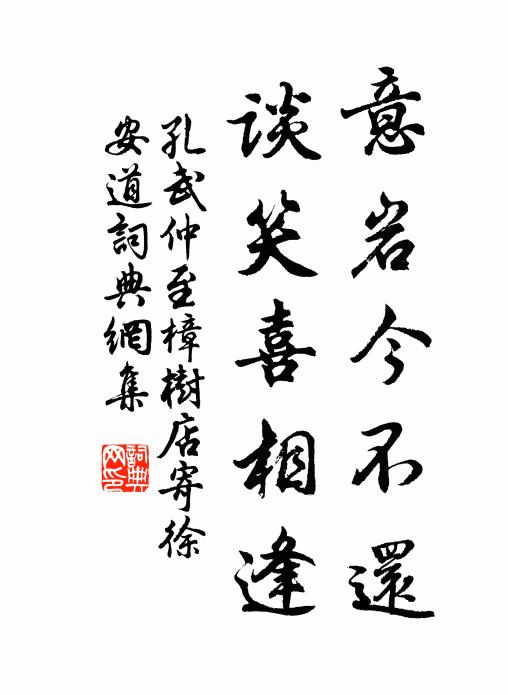 意岩今不還
談笑喜相逢
孔武仲至樟樹店寄徐
安道詞典網集
詞典网印